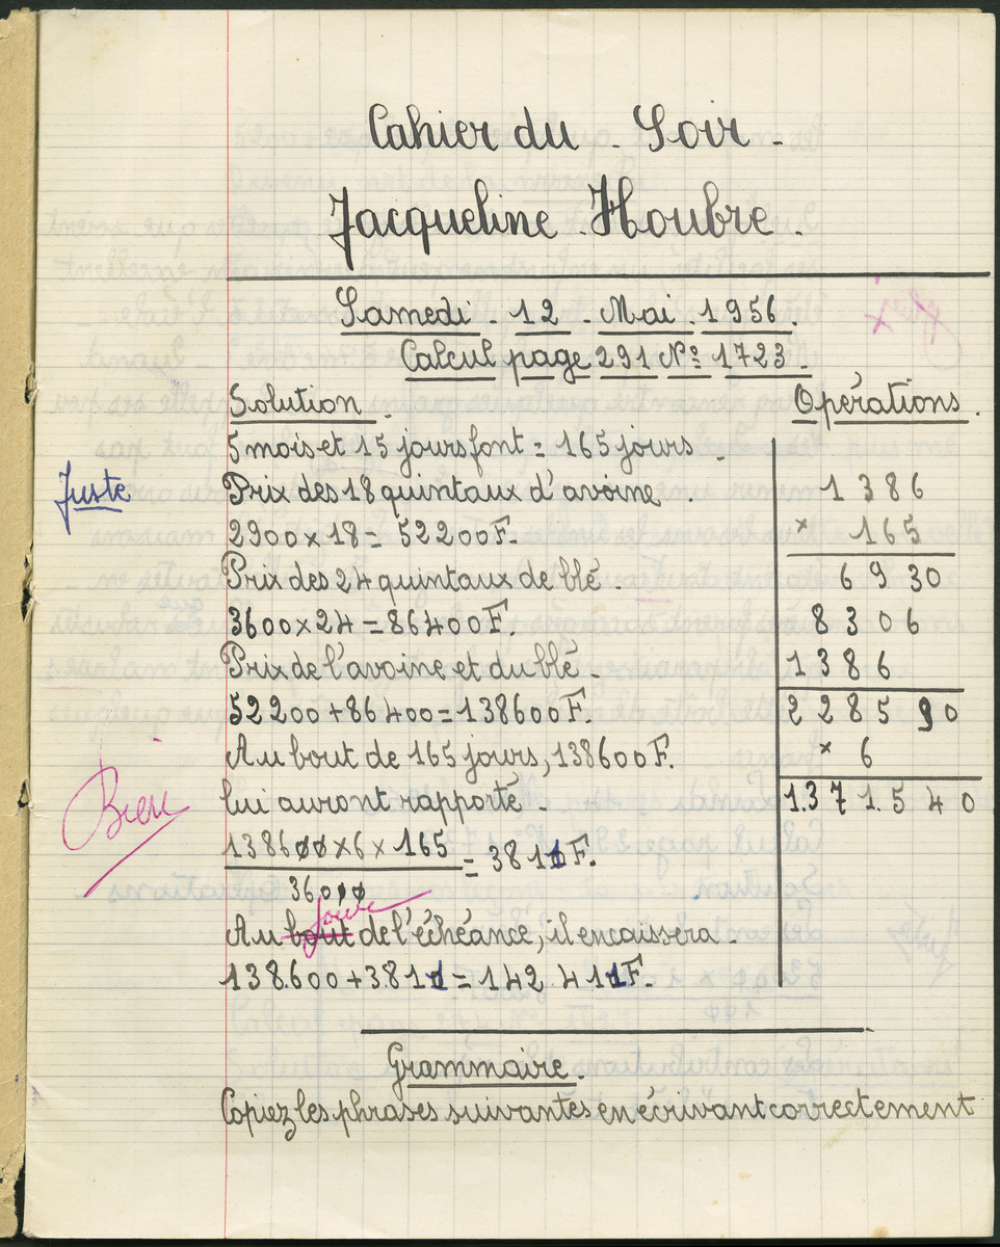 Cahier du Soir.
Jacqueline Houbre.
Samedi 12 Mai 1956.
Calcul page 291 N° 1723.
Solution. Opérations.
5 mois et 15 jours font = 165 jours.
Juste
Prix des 18 quintaux d'avoine. 1386
2900 x 18 = 52200 F. x 165
Prix des 24 quintaux de blé. 6930
3600 x 24 = 86400 F. 8306
Prix de l'avoine et du blé. 1386
52200 + 86400 = 138600 F. 228590
Au bout de 165 jours, 138600 F. x 6
Bien
lui auront rapporté. 1.371.540
138600 x 6 x 165
= 3811 F.
36000
jour
Au bout de l'échéance, il encaissera.
138.600 + 3811 = 142.411 F.
Grammaire.
Copiez les phrases suivantes en écrivant correctement